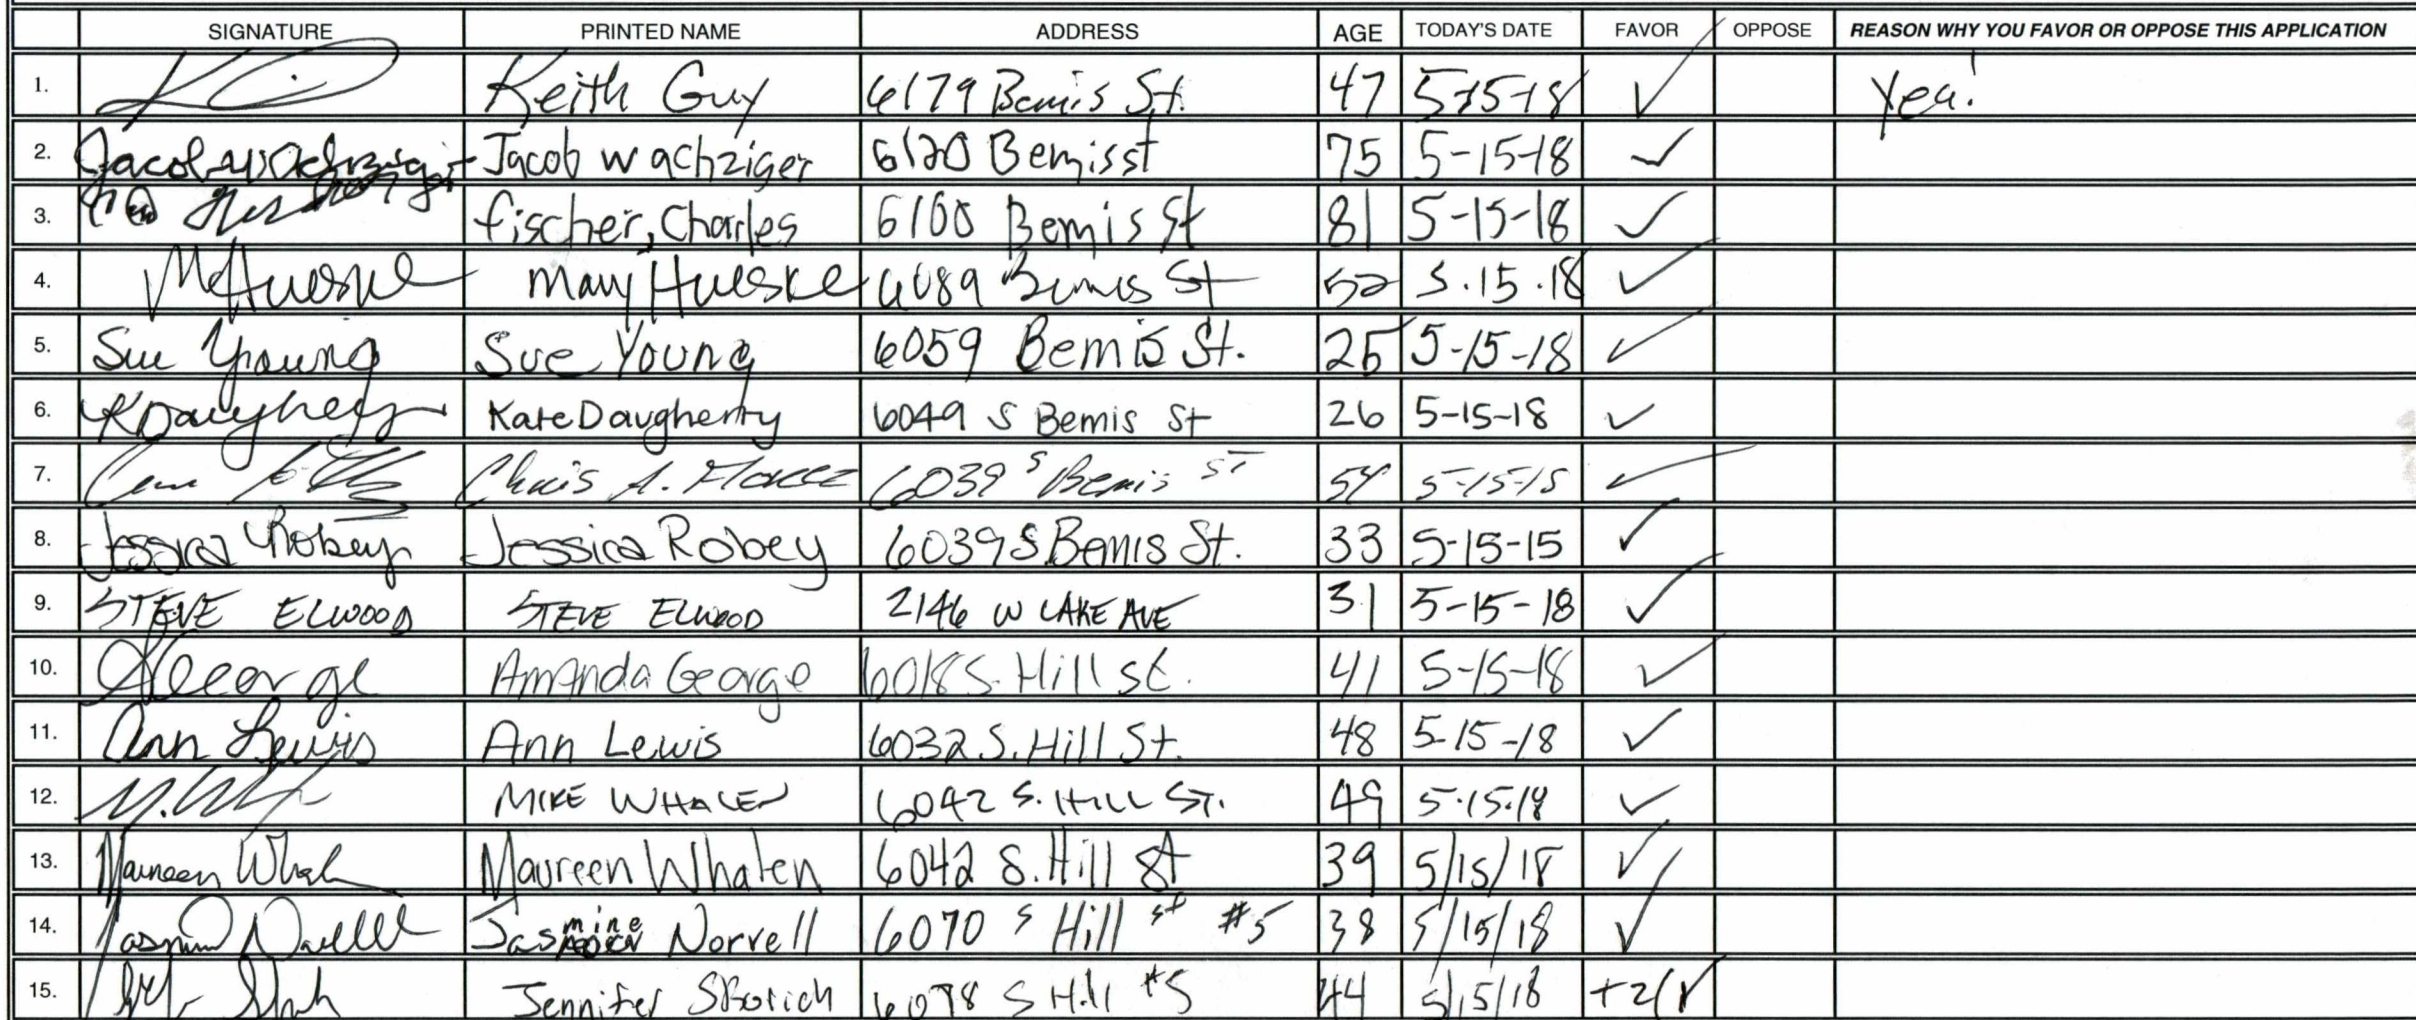 SIGNATURE PRINTED NAME ADDRESS AGE TODAY'S DATE FAVOR OPPOSE REASON WHY YOU FAVOR OR OPPOSE THIS APPLICATION
1. Keith Guy 6179 Bemis St. 47 5-15-18 ✓ Yea!
2. Jacob Wachziger Jacob wachziger 6120 Bemis st 75 5-15-18 ✓
3. fischer, Charles 6100 Bemis St 81 5-15-18 ✓
4. M Hueske Mary Hueske 6089 Bemis St 52 5.15.18 ✓
5. Sue Young Sue Young 6059 Bemis St. 25 5-15-18 ✓
6. K Daugherty Kate Daugherty 6049 S Bemis St 26 5-15-18 ✓
7. Chris A. 6039 S Bemis ST 54 5-15-15 ✓
8. Jessica Robey Jessica Robey 6039 S Bemis St. 33 5-15-15 ✓
9. STEVE ELWOOD STEVE ELWOOD 2146 W LAKE AVE 31 5-15-18 ✓
10. AGeorge Amanda George 6018 S. Hill st. 41 5-15-18 ✓
11. Ann Lewis Ann Lewis 6032 S. Hill St. 48 5-15-18 ✓
12. MIKE WHALEN 6042 S. HILL ST. 49 5.15.18 ✓
13. Maureen Whalen Maureen Whalen 6042 S. Hill St 39 5/15/18 ✓
14. Jasmine Norvell Jasmine Norvell 6070 S Hill st #5 38 5/15/18 ✓
15. Jennifer 6078 S Hill #5 44 5/15/18 ✓